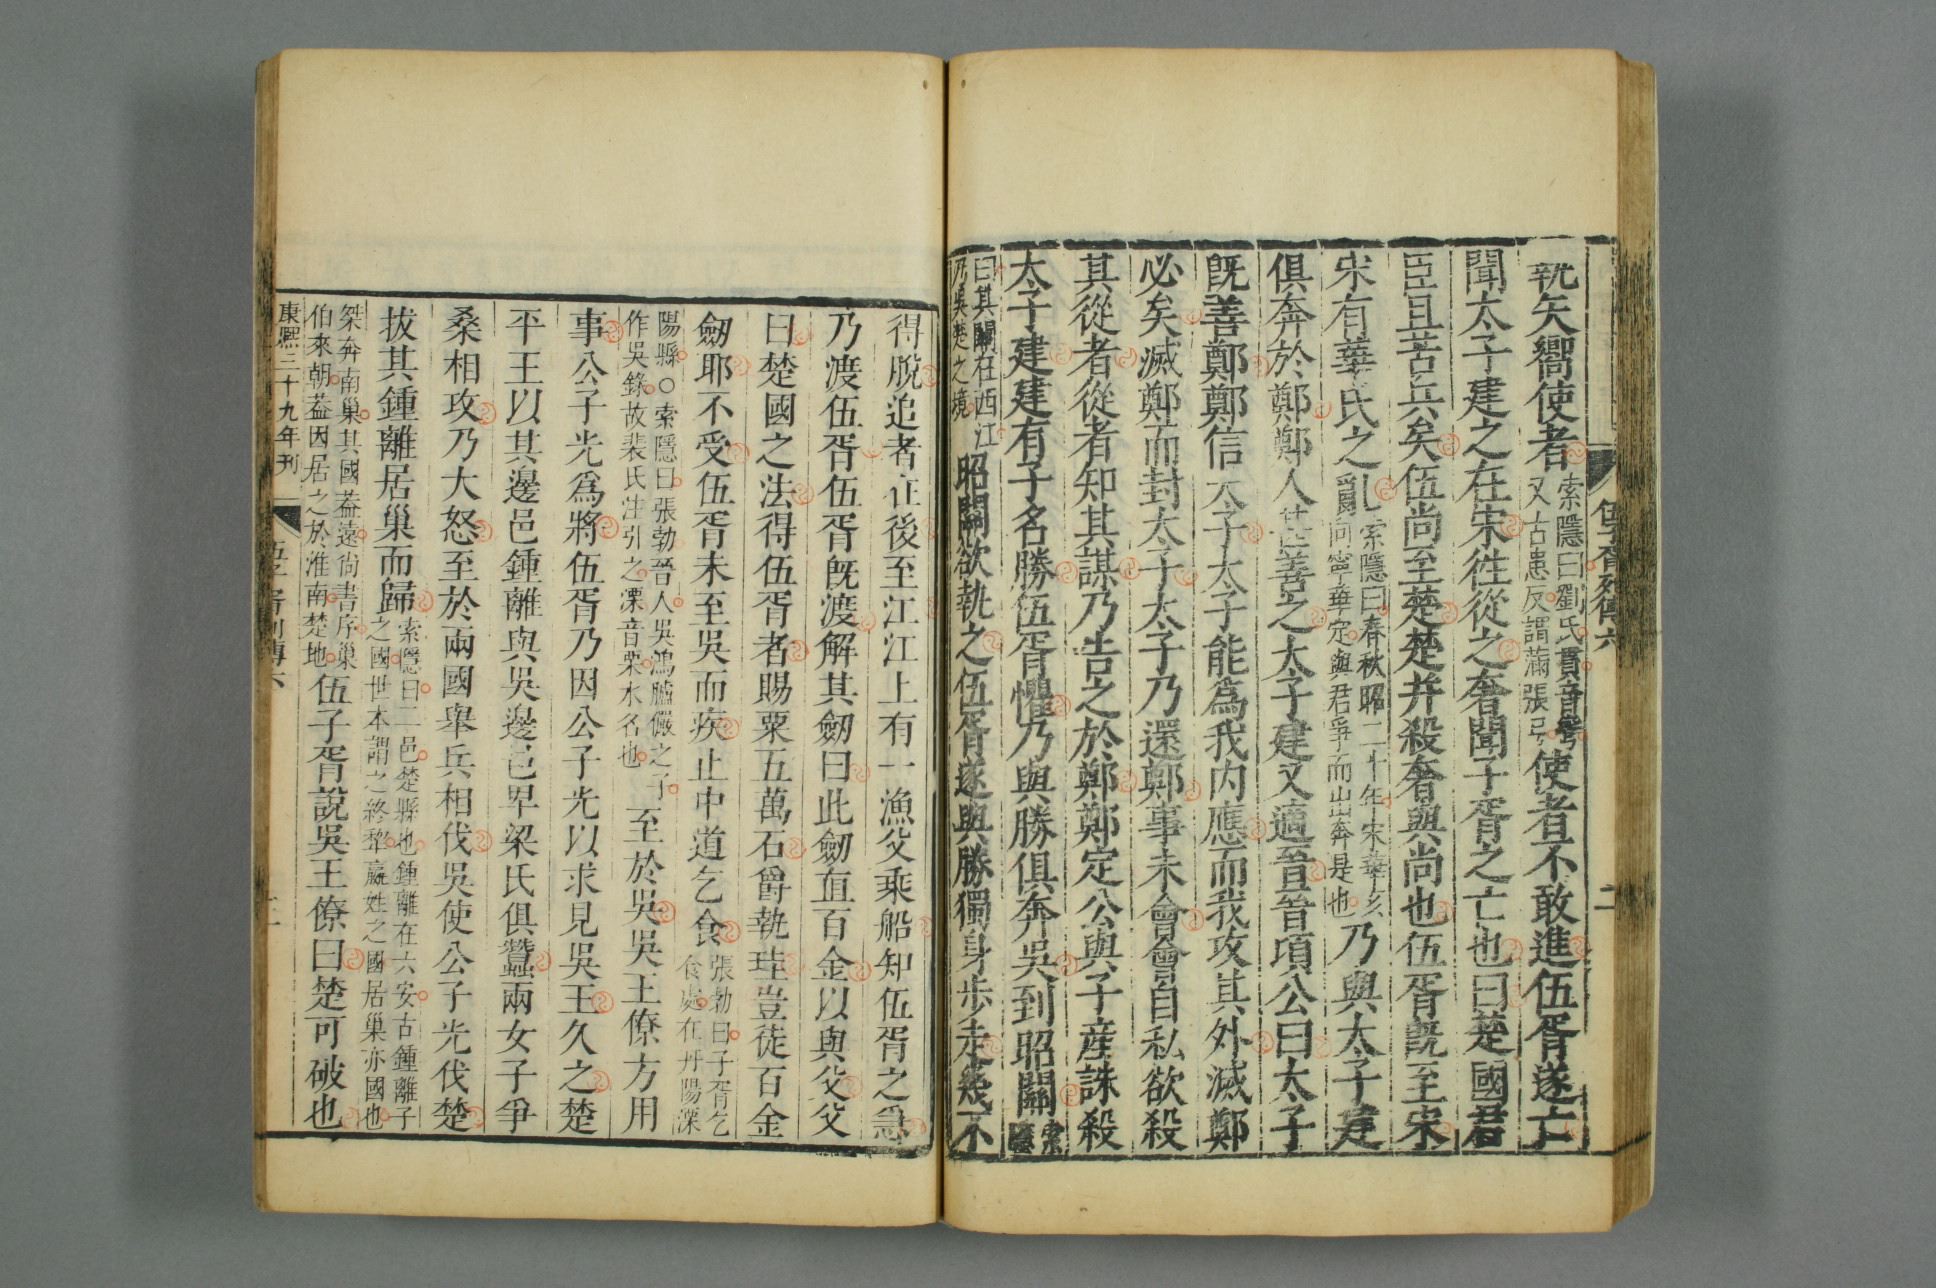 執矢嚮使者索隱曰劉氏貫音彎又古患反謂滿張弓使者不敢進伍胥遂亡
聞太子建之在宋徃從之奢聞子胥之亡也曰楚國君
臣且苦兵矣伍尚至楚楚并殺奢與尚也伍胥旣至宋
宋有華氏之亂索隱曰春秋昭二十年宋華亥向寧華定與君爭而出奔是也乃與太子建
俱奔於鄭鄭人甚善之太子建又適晉晉頃公曰太子
旣善鄭鄭信太子太子能爲我内應而我攻其外滅鄭
必矣滅鄭而封太子太子乃還鄭事未會會自私欲殺
其從者從者知其謀乃告之於鄭鄭定公與子產誅殺
太子建建有子名勝伍胥懼乃與勝俱奔吳到昭關索隱
曰其關在西江乃吳楚之境昭關欲執之伍胥遂與勝獨身步走幾不
伍子胥列傳六 二
得脫追者在後至江江上有一漁父乘船知伍胥之急
乃渡伍胥伍胥旣渡解其劒曰此劒直百金以與父父
曰楚國之法得伍胥者賜粟五萬石爵執珪豈徒百金
劒耶不受伍胥未至吳而疾止中道乞食張勃曰子胥乞食處在丹陽溧
陽縣○索隱曰張勃晉人吳鴻臚儼之子作吳錄故裴氏注引之溧音栗水名也至於吳吳王僚方用
事公子光爲將伍胥乃因公子光以求見吳王久之楚
平王以其邊邑鍾離與吳邊邑卑梁氏俱蠶兩女子爭
桑相攻乃大怒至於兩國舉兵相伐吳使公子光伐楚
拔其鍾離居巢而歸索隱曰二邑楚縣也鍾離在六安古鍾離子之國世本謂之終犂嬴姓之國居巢亦國也
桀奔南巢其國葢遠尚書序巢伯來朝葢因居之於淮南楚地伍子胥說吳王僚曰楚可破也
康熙三十九年刊 伍子胥列傳六 三